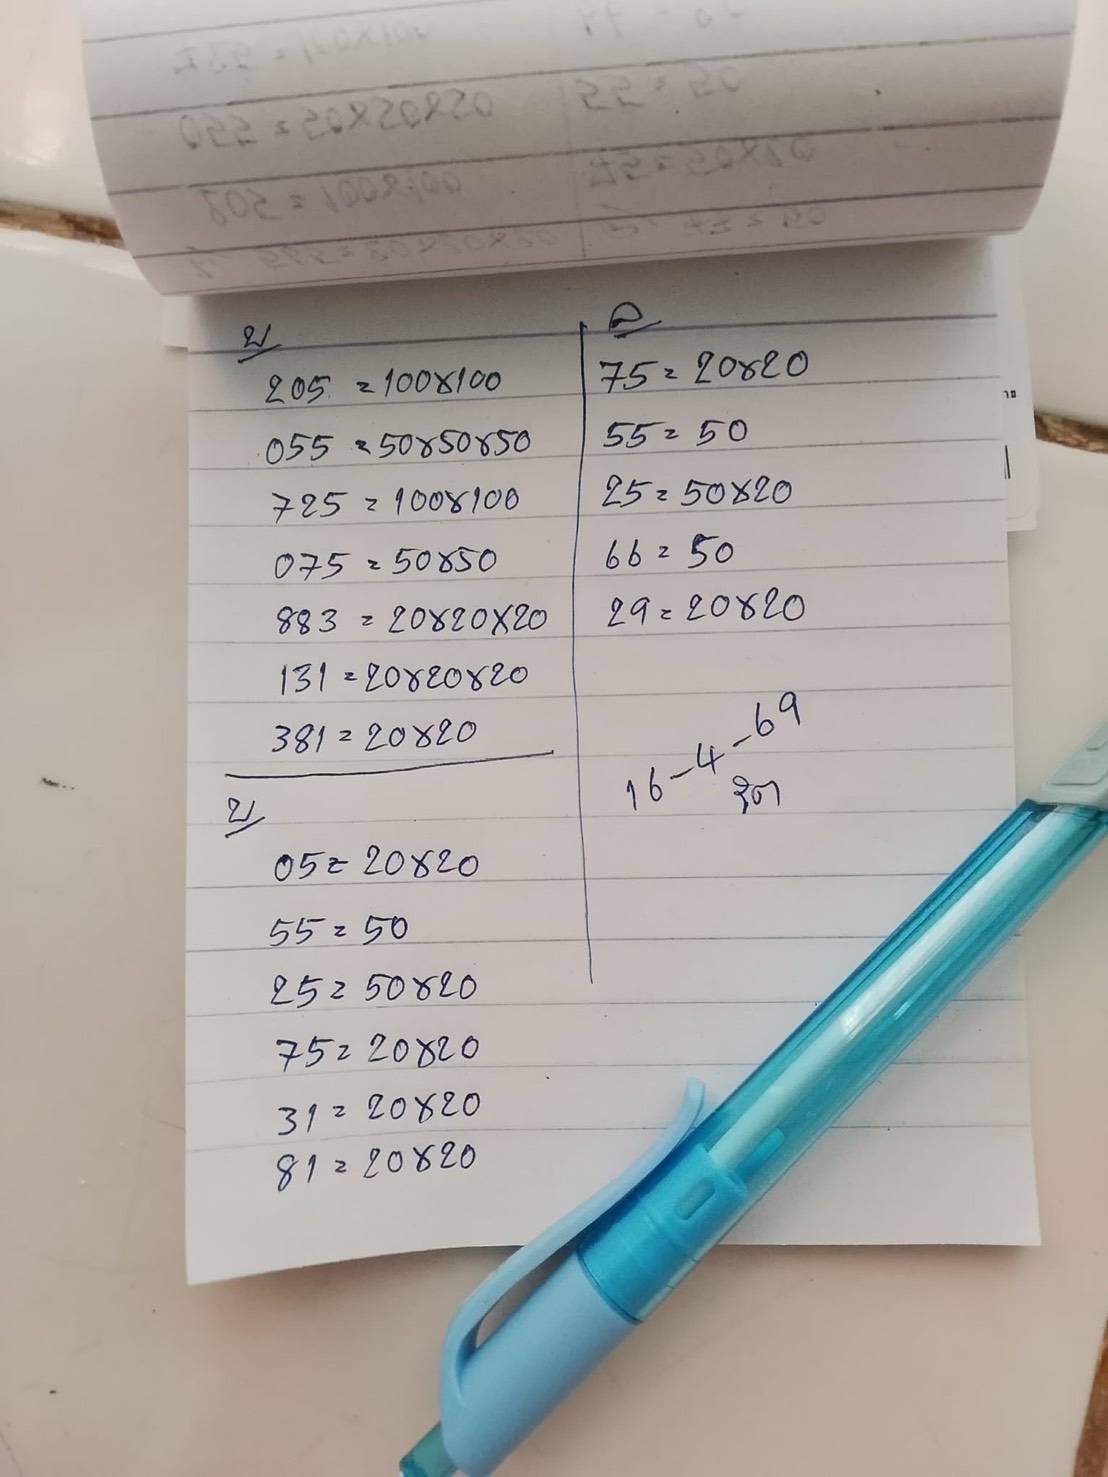 บ
205 = 100x100
055 = 50x50x50
725 = 100x100
075 = 50x50
883 = 20x20x20
131 = 20x20x20
381 = 20x20
บ
05 = 20x20
55 = 50
25 = 50x20
75 = 20x20
31 = 20x20
81 = 20x20
ล
75 = 20x20
55 = 50
25 = 50x20
66 = 50
29 = 20x20
16-4-69